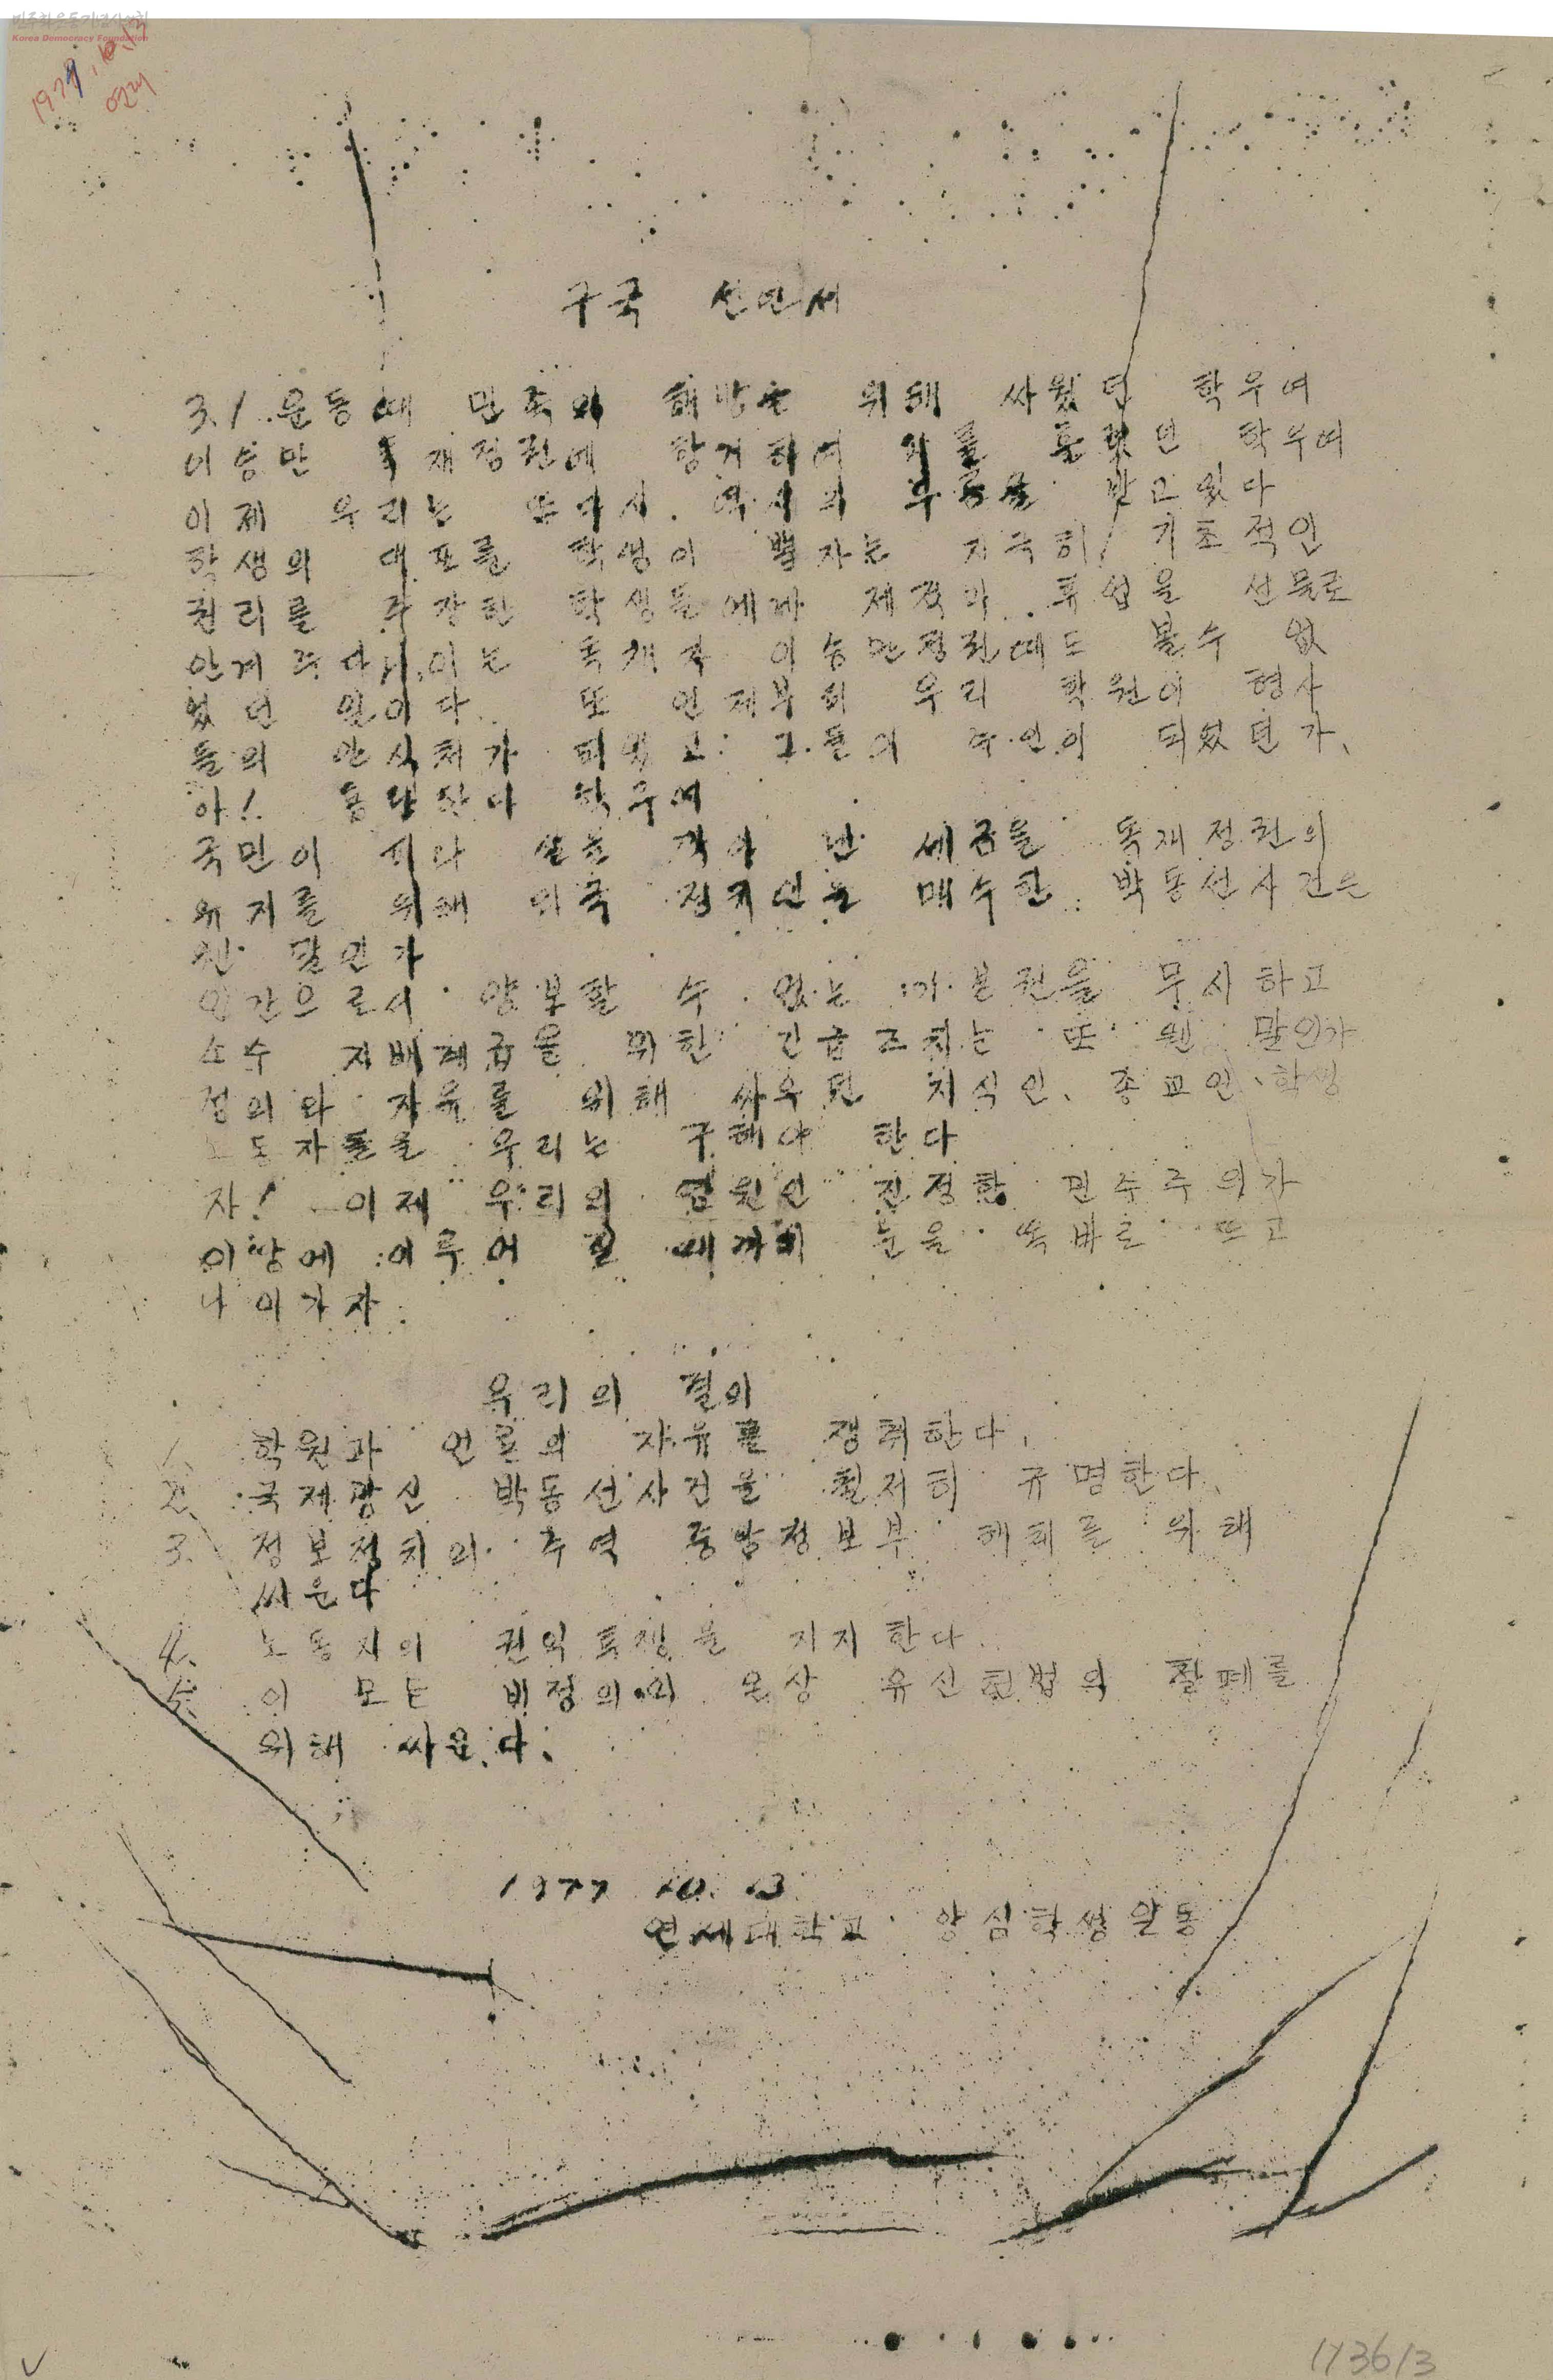 민주화운동기념사업회
Korea Democracy Foundation
1977. 10. 13
연대
구국 선언서
3.1 운동때 민족의 해방을 위해 싸웠던 학우여
이승만 독재정권에 항거하여 피를 흘렸던 학우여
이제 우리는 또다시 역사의 부름을 받고있다
학생의 대표를 학생이 뽑자는 지극히 기초적인
권리를 주장한 학생들에게 제적과 휴업을 선물로
안겨 주다니, 이는 독재자 이승만정권때도 볼수 없
었던 일이다. 또 언제부터 우리 학원이 형사
들의 안식처가 되었고 그들이 주인이 되었던가.
아! 통탄한다 학우여
국민이 피와 살을 깎아 낸 세금을 독재정권의
유지를 위해 미국 정치인을 매수한 박동선사건은
웬 말인가
인간으로서 양보할 수 없는 기본권을 무시하고
소수 지배계급을 위한 긴급조치는 또 웬 말인가
정의와 자유를 위해 싸우던 지식인, 종교인, 학생
노동자들을 우리는 구해야 한다
자! 이제 우리의 염원인 진정한 민주주의가
이땅에 이루어 질 때까지 눈을 똑바로 뜨고
나아가자
우리의 결의
1. 학원과 언론의 자유를 쟁취한다.
2. 국제망신 박동선사건을 철저히 규명한다.
3. 정보정치의 주역 중앙정보부 해체를 위해
싸운다
4. 노동자의 권익투쟁을 지지한다.
5. 이 모든 비정의의 온상 유신헌법의 철폐를
위해 싸운다.
1977 10. 13
연세대학교 양심학생일동